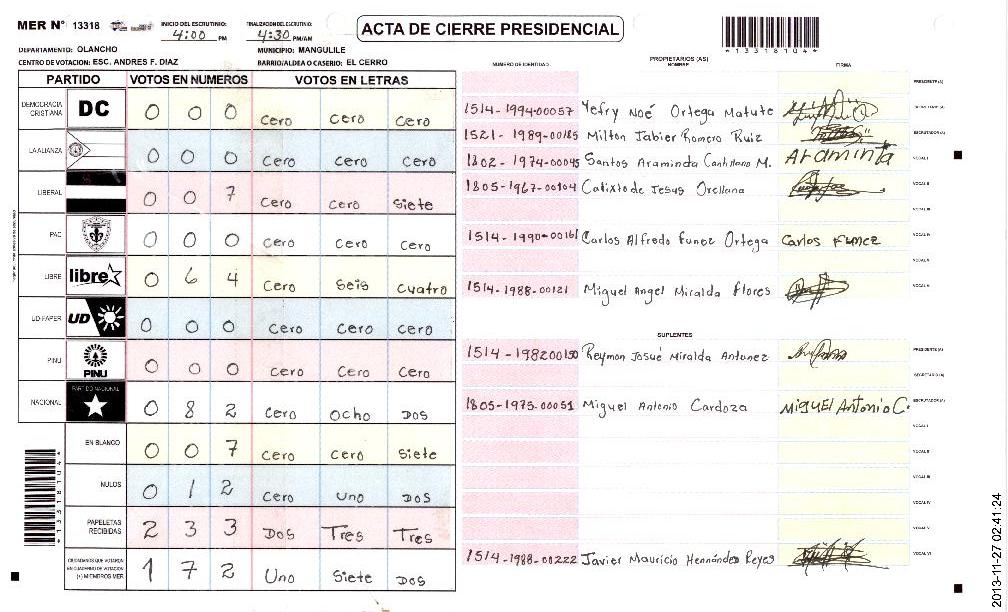 MER N° 13318 INICIO DEL ESCRUTINIO: 4:00 PM FINALIZACION DEL ESCRUTINIO: 4:30 PM/AM ACTA DE CIERRE PRESIDENCIAL
*13318104*
DEPARTAMENTO: OLANCHO MUNICIPIO: MANGULILE
CENTRO DE VOTACION: ESC. ANDRES F. DIAZ BARRIO/ALDEA O CASERIO: EL CERRO
PARTIDO VOTOS EN NUMEROS VOTOS EN LETRAS
DEMOCRACIA CRISTIANA DC 0 0 0 Cero Cero Cero
LA ALIANZA 0 0 0 Cero Cero Cero
LIBERAL 0 0 7 Cero Cero Siete
PAC 0 0 0 Cero Cero Cero
LIBRE libre 0 6 4 Cero Seis Cuatro
UD-FAPER UD 0 0 0 Cero Cero Cero
PINU PINU 0 0 0 Cero Cero Cero
NACIONAL PARTIDO NACIONAL 0 8 2 Cero Ocho Dos
EN BLANCO 0 0 7 Cero Cero Siete
NULOS 0 1 2 Cero Uno Dos
PAPELETAS RECIBIDAS 2 3 3 Dos Tres Tres
CIUDADANOS QUE VOTARON EN CUADERNO DE VOTACION (+) MIEMBROS MER 1 7 2 Uno Siete Dos
*13318104*
PROPIETARIOS (AS)
NUMERO DE IDENTIDAD NOMBRE FIRMA
PRESIDENTE (A)
1514-1994-00057 Yefry Noé Ortega Matute SECRETARIO (A)
1521-1989-00185 Milton Jabier Romero Ruiz ESCRUTADOR (A)
1802-1974-00045 Santos Araminda Cantillano M. Araminta VOCAL I
1805-1967-00104 Calixto de Jesus Orellana VOCAL II
VOCAL III
1514-1990-00161 Carlos Alfredo Funez Ortega Carlos Funez VOCAL IV
VOCAL V
1514-1988-00121 Miguel Angel Miralda Flores VOCAL VI
SUPLENTES
1514-1982 00150 Reymon Josué Miralda Antunez PRESIDENTE (A)
SECRETARIO (A)
1805-1975-00051 Miguel Antonio Cardoza Miguel Antonio C. ESCRUTADOR (A)
VOCAL I
VOCAL II
VOCAL III
VOCAL IV
VOCAL V
1514-1988-00222 Javier Mauricio Hernández Reyes VOCAL VI
2013-11-27 02:41:24